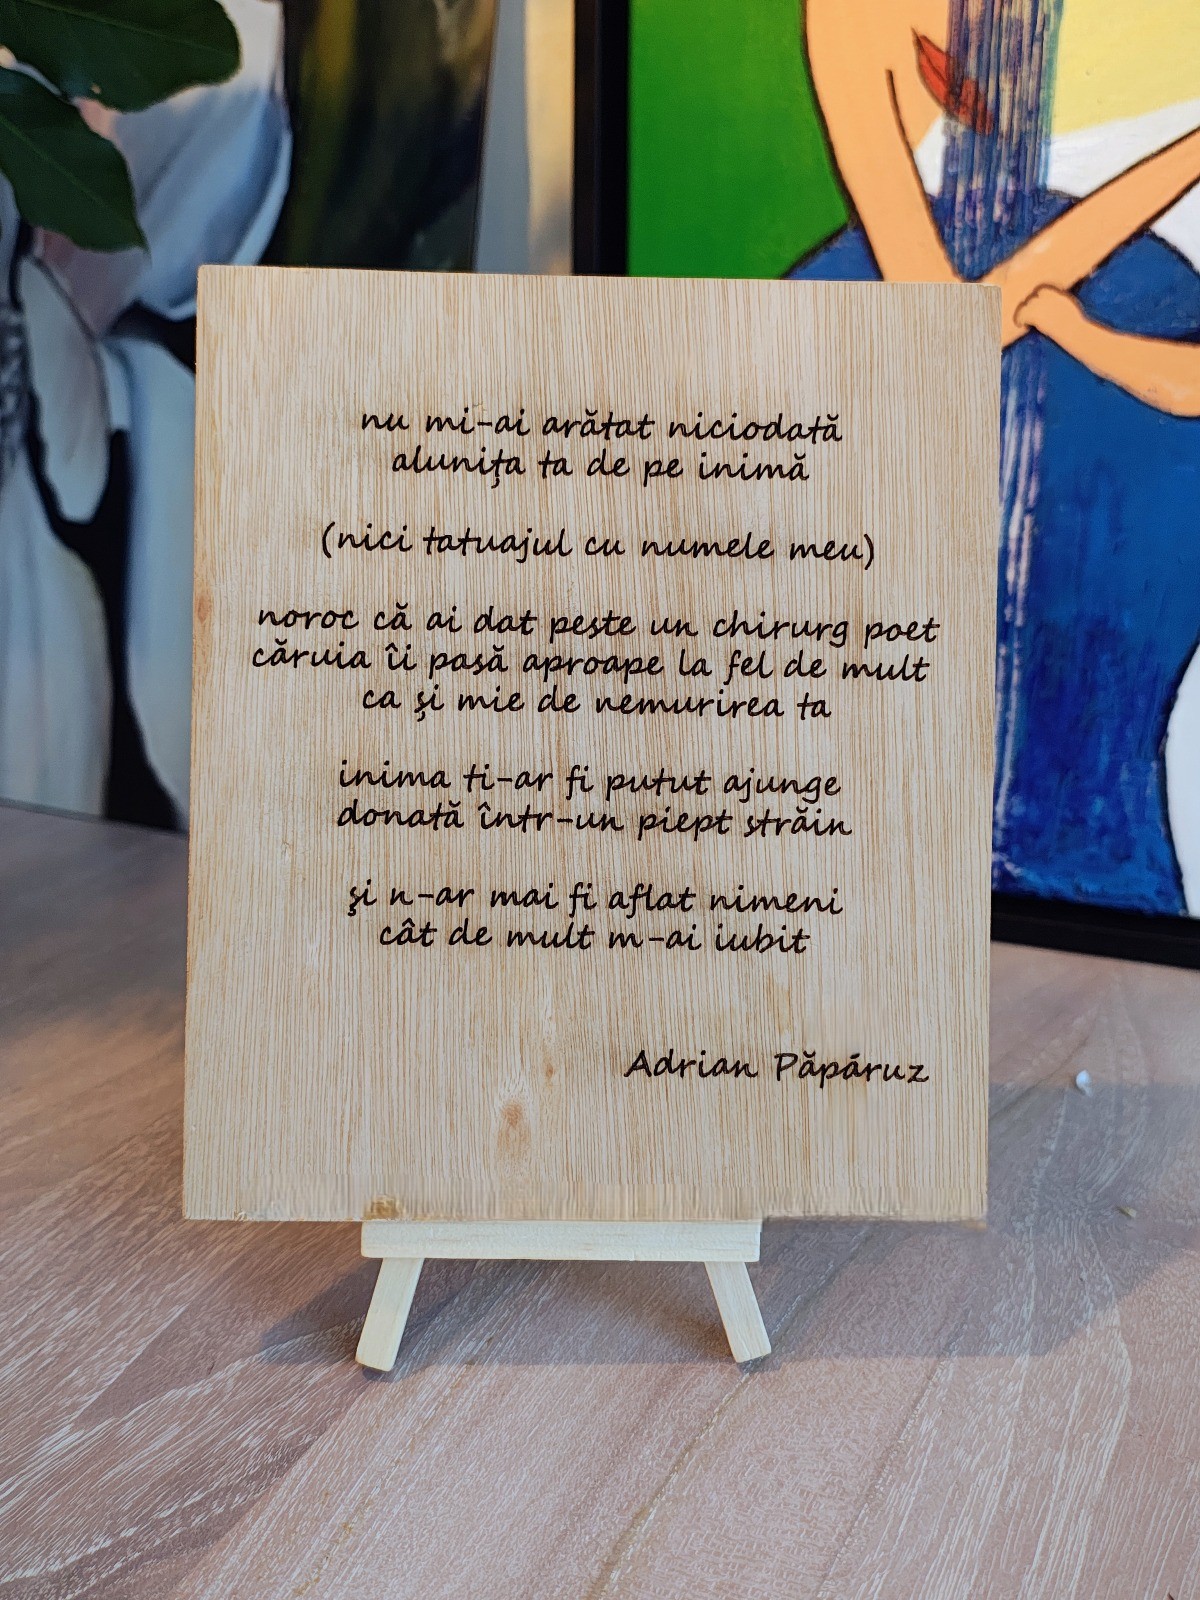 nu mi-ai arătat niciodată
alunița ta de pe inimă
(nici tatuajul cu numele meu)
noroc că ai dat peste un chirurg poet
căruia îi pasă aproape la fel de mult
ca și mie de nemurirea ta
inima ti-ar fi putut ajunge
donată într-un piept străin
și n-ar mai fi aflat nimeni
cât de mult m-ai iubit
Adrian Păpăruz